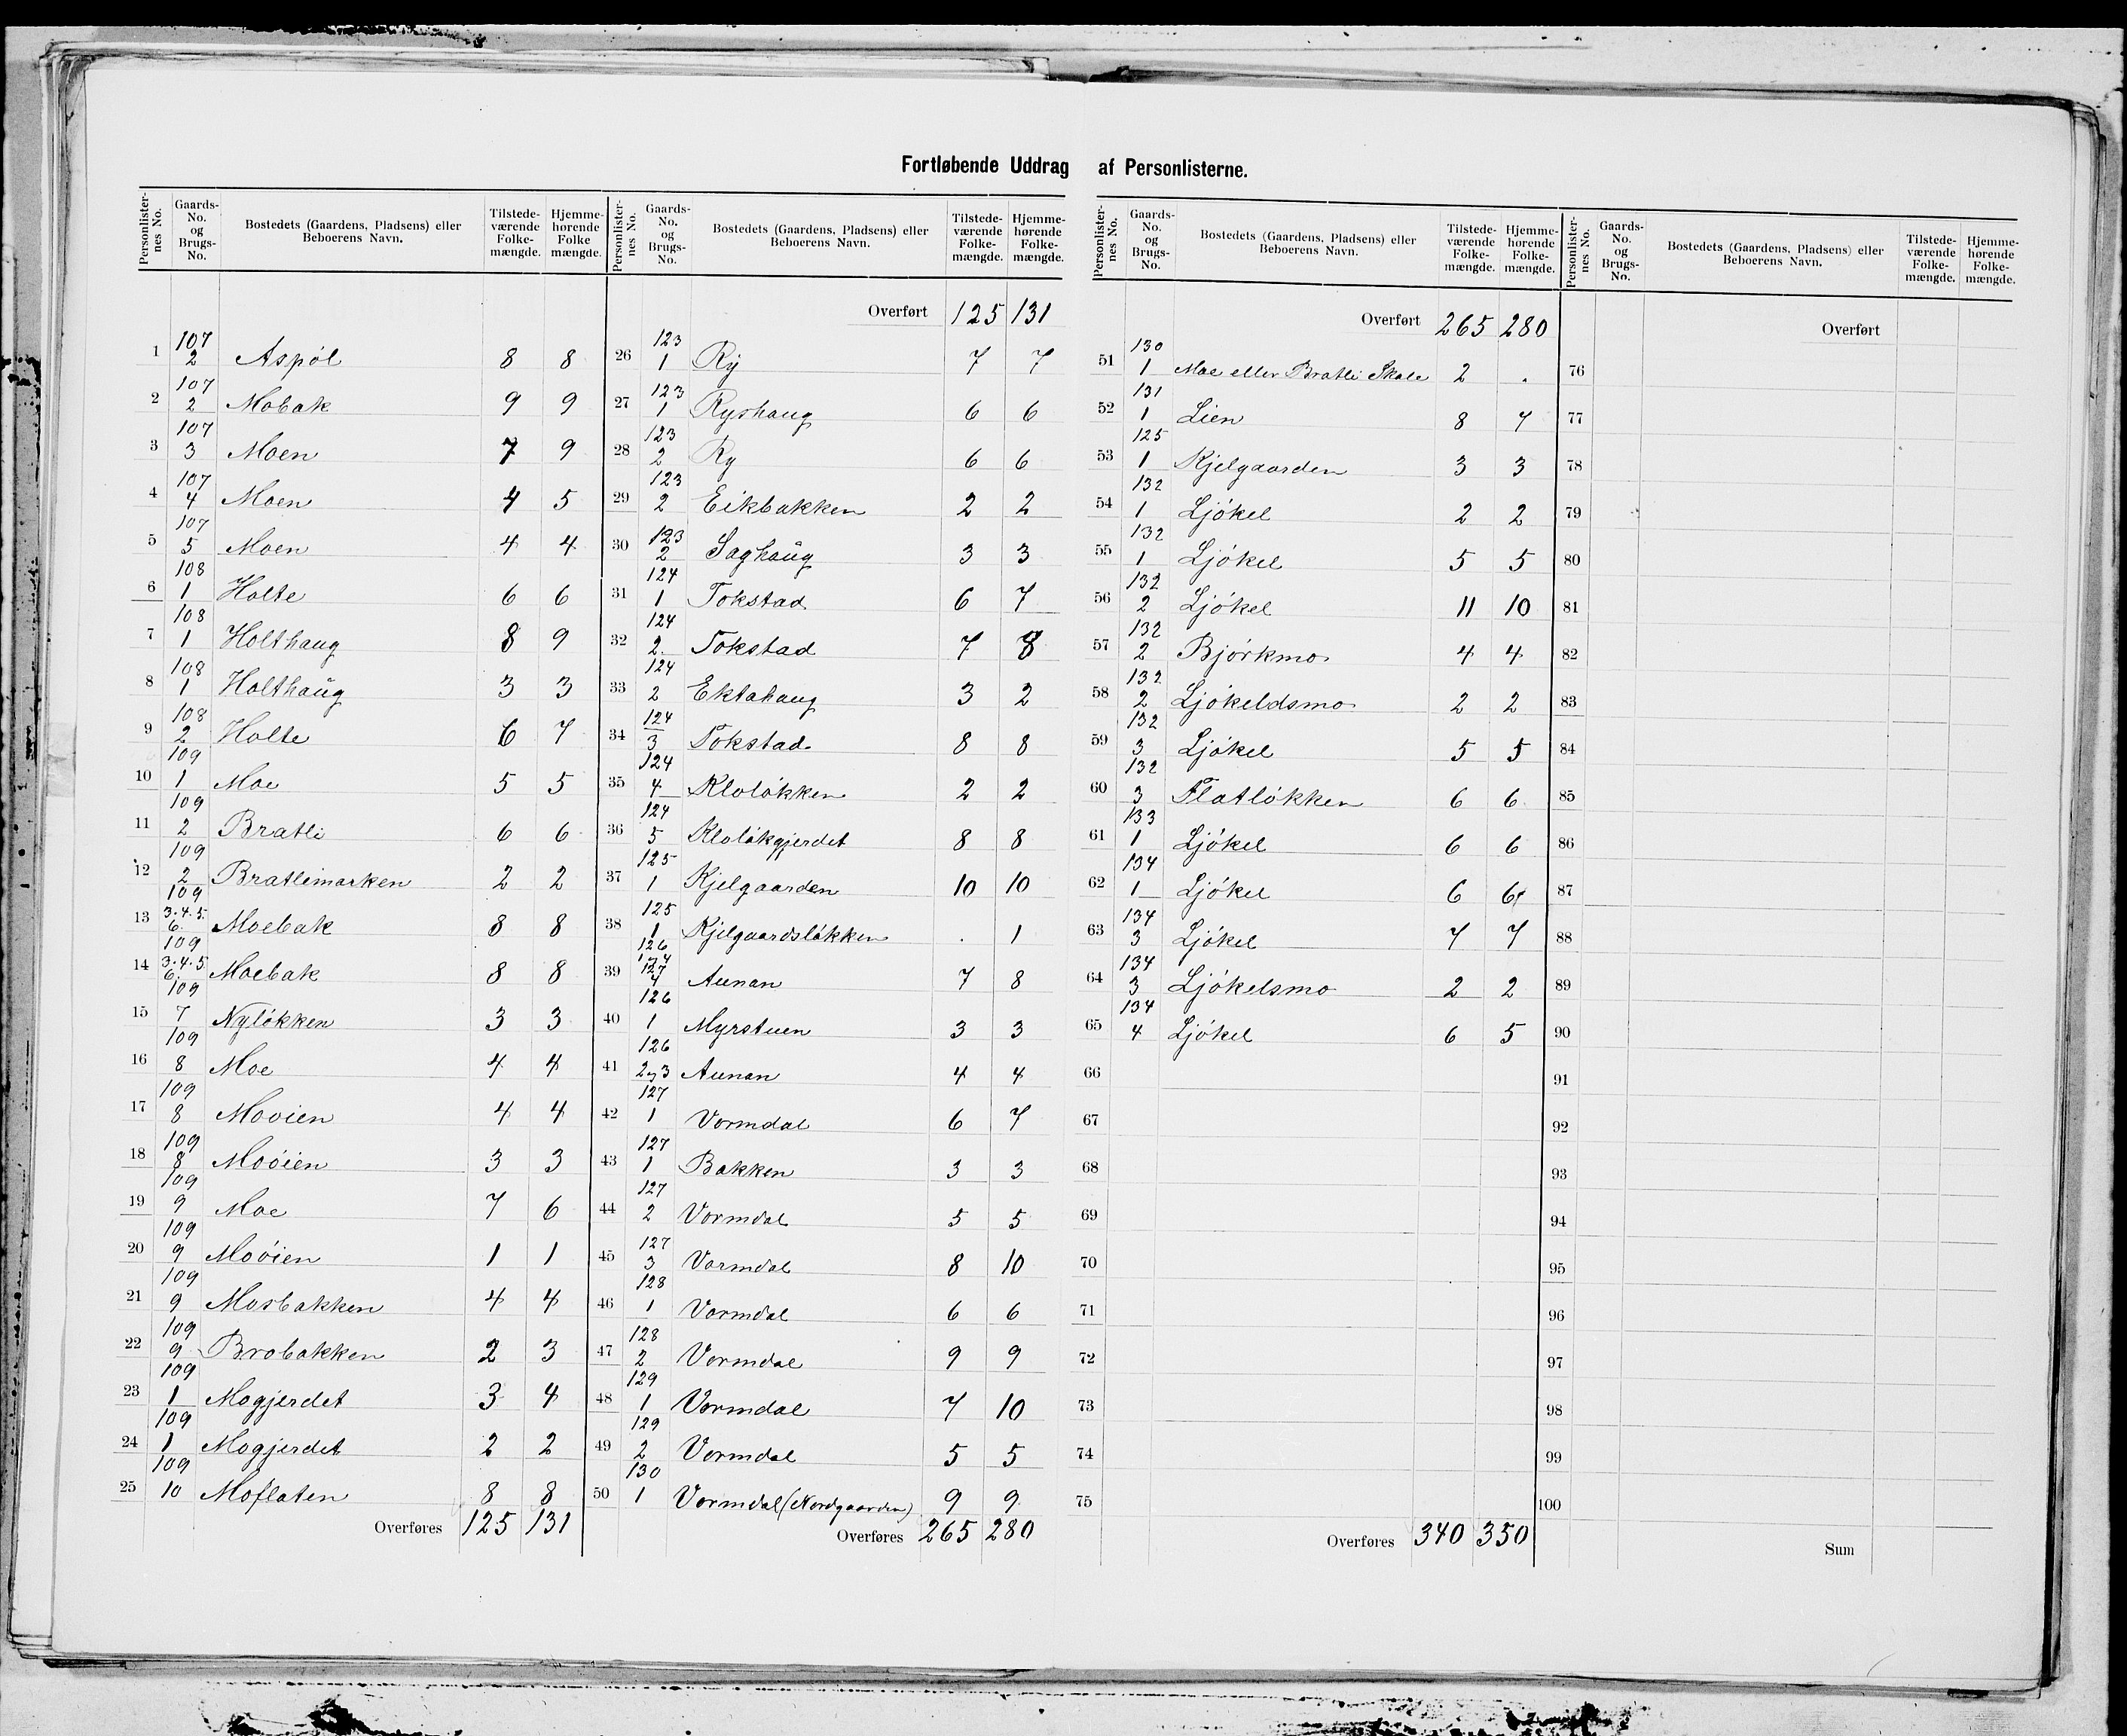 Fortløbende Uddrag af Personlisterne.
Personlister-nes No. | Gaards-No. og Brugs-No. | Bostedets (Gaardens, Pladsens) eller Beboerens Navn. | Tilstede-værende Folke-mængde. | Hjemme-hørende Folke mængde.
1 107/2 Aspöl 8 8
2 107/2 Mobak 9 9
3 107/3 Moen 7 9
4 107/4 Moen 4 5
5 107/5 Moen 4 4
6 108/1 Holte 6 6
7 108/1 Holthaug 8 9
8 108/1 Holthaug 3 3
9 108/2 Holte 6 7
10 109/1 Moe 5 5
11 109/2 Bratli 6 6
12 109/2 Bratlimarken 2 2
13 109/3.4.5.6. Moebak 8 8
14 109/3.4.5.6. Moebak 8 8
15 109/7 Nylökken 3 3
16 109/8 Moe 4 4
17 109/8 Movien 4 4
18 109/8 Moöien 3 3
19 109/9 Moe 7 6
20 109/9 Moöien 1 1
21 109/9 Mosbakken 4 4
22 109/9 Brobakken 2 3
23 109/1 Mogjerdet 3 4
24 109/1 Mogjerdet 2 2
25 109/10 Moflaten 8 8
Overføres 125 131
Personlister-nes No. | Gaards-No. og Brugs-No. | Bostedets (Gaardens, Pladsens) eller Beboerens Navn. | Tilstede-værende Folke-mængde. | Hjemme-hørende Folke-mængde.
Overført 125 131
26 123/1 Ry 7 7
27 123/1 Ryshaug 6 6
28 123/2 Ry 6 6
29 123/2 Eikbakken 2 2
30 123/2 Saghaug 3 3
31 124/1 Tokstad 6 7
32 124/2 Tokstad 7 8
33 124/2 Ektahaug 3 2
34 124/3 Tokstad 8 8
35 124/4 Klolökken 2 2
36 124/5 Klolökgjerdet 8 8
37 125/1 Kjelgaarden 10 10
38 125/1 Kjelgaardslökken . 1
39 126 127/4 Aunan 7 8
40 126/1 Myrstuen 3 3
41 126/2 og 3 Aunan 4 4
42 127/1 Vormdal 6 7
43 127/1 Bakken 3 3
44 127/2 Vormdal 5 5
45 127/3 Vormdal 8 10
46 128/1 Vormdal 6 6
47 128/2 Vormdal 9 9
48 129/1 Vormdal 7 10
49 129/2 Vormdal 5 5
50 130/1 Vormdal (Nordgaarden) 9 9
Overføres 265 280
Personlister-nes No. | Gaards-No. og Brugs-No. | Bostedets (Gaardens, Pladsens) eller Beboerens Navn. | Tilstede-værende Folke-mængde. | Hjemme-hørende Folke-mængde.
Overført 265 280
51 130/1 Moe eller Bratli Skole 2 .
52 131/1 Lien 8 7
53 125/1 Kjelgaarden 3 3
54 132/1 Ljökel 2 2
55 132/1 Ljökel 5 5
56 132/2 Ljökel 11 10
57 132/2 Björkmo 4 4
58 132/2 Ljökeldsmo 2 2
59 132/3 Ljökel 5 5
60 132/3 Flatlökken 6 6
61 133/1 Ljökel 6 6
62 134/1 Ljökel 6 6
63 134/3 Ljökel 7 7
64 134/3 Ljökelsmo 2 2
65 134/4 Ljökel 6 5
66
67
68
69
70
71
72
73
74
75
Overføres 340 350
Personlister-nes No. | Gaards-No. og Brugs-No. | Bostedets (Gaardens, Pladsens) eller Beboerens Navn. | Tilstede-værende Folke-mængde. | Hjemme-hørende Folke-mængde.
Overført
76
77
78
79
80
81
82
83
84
85
86
87
88
89
90
91
92
93
94
95
96
97
98
99
100
Sum